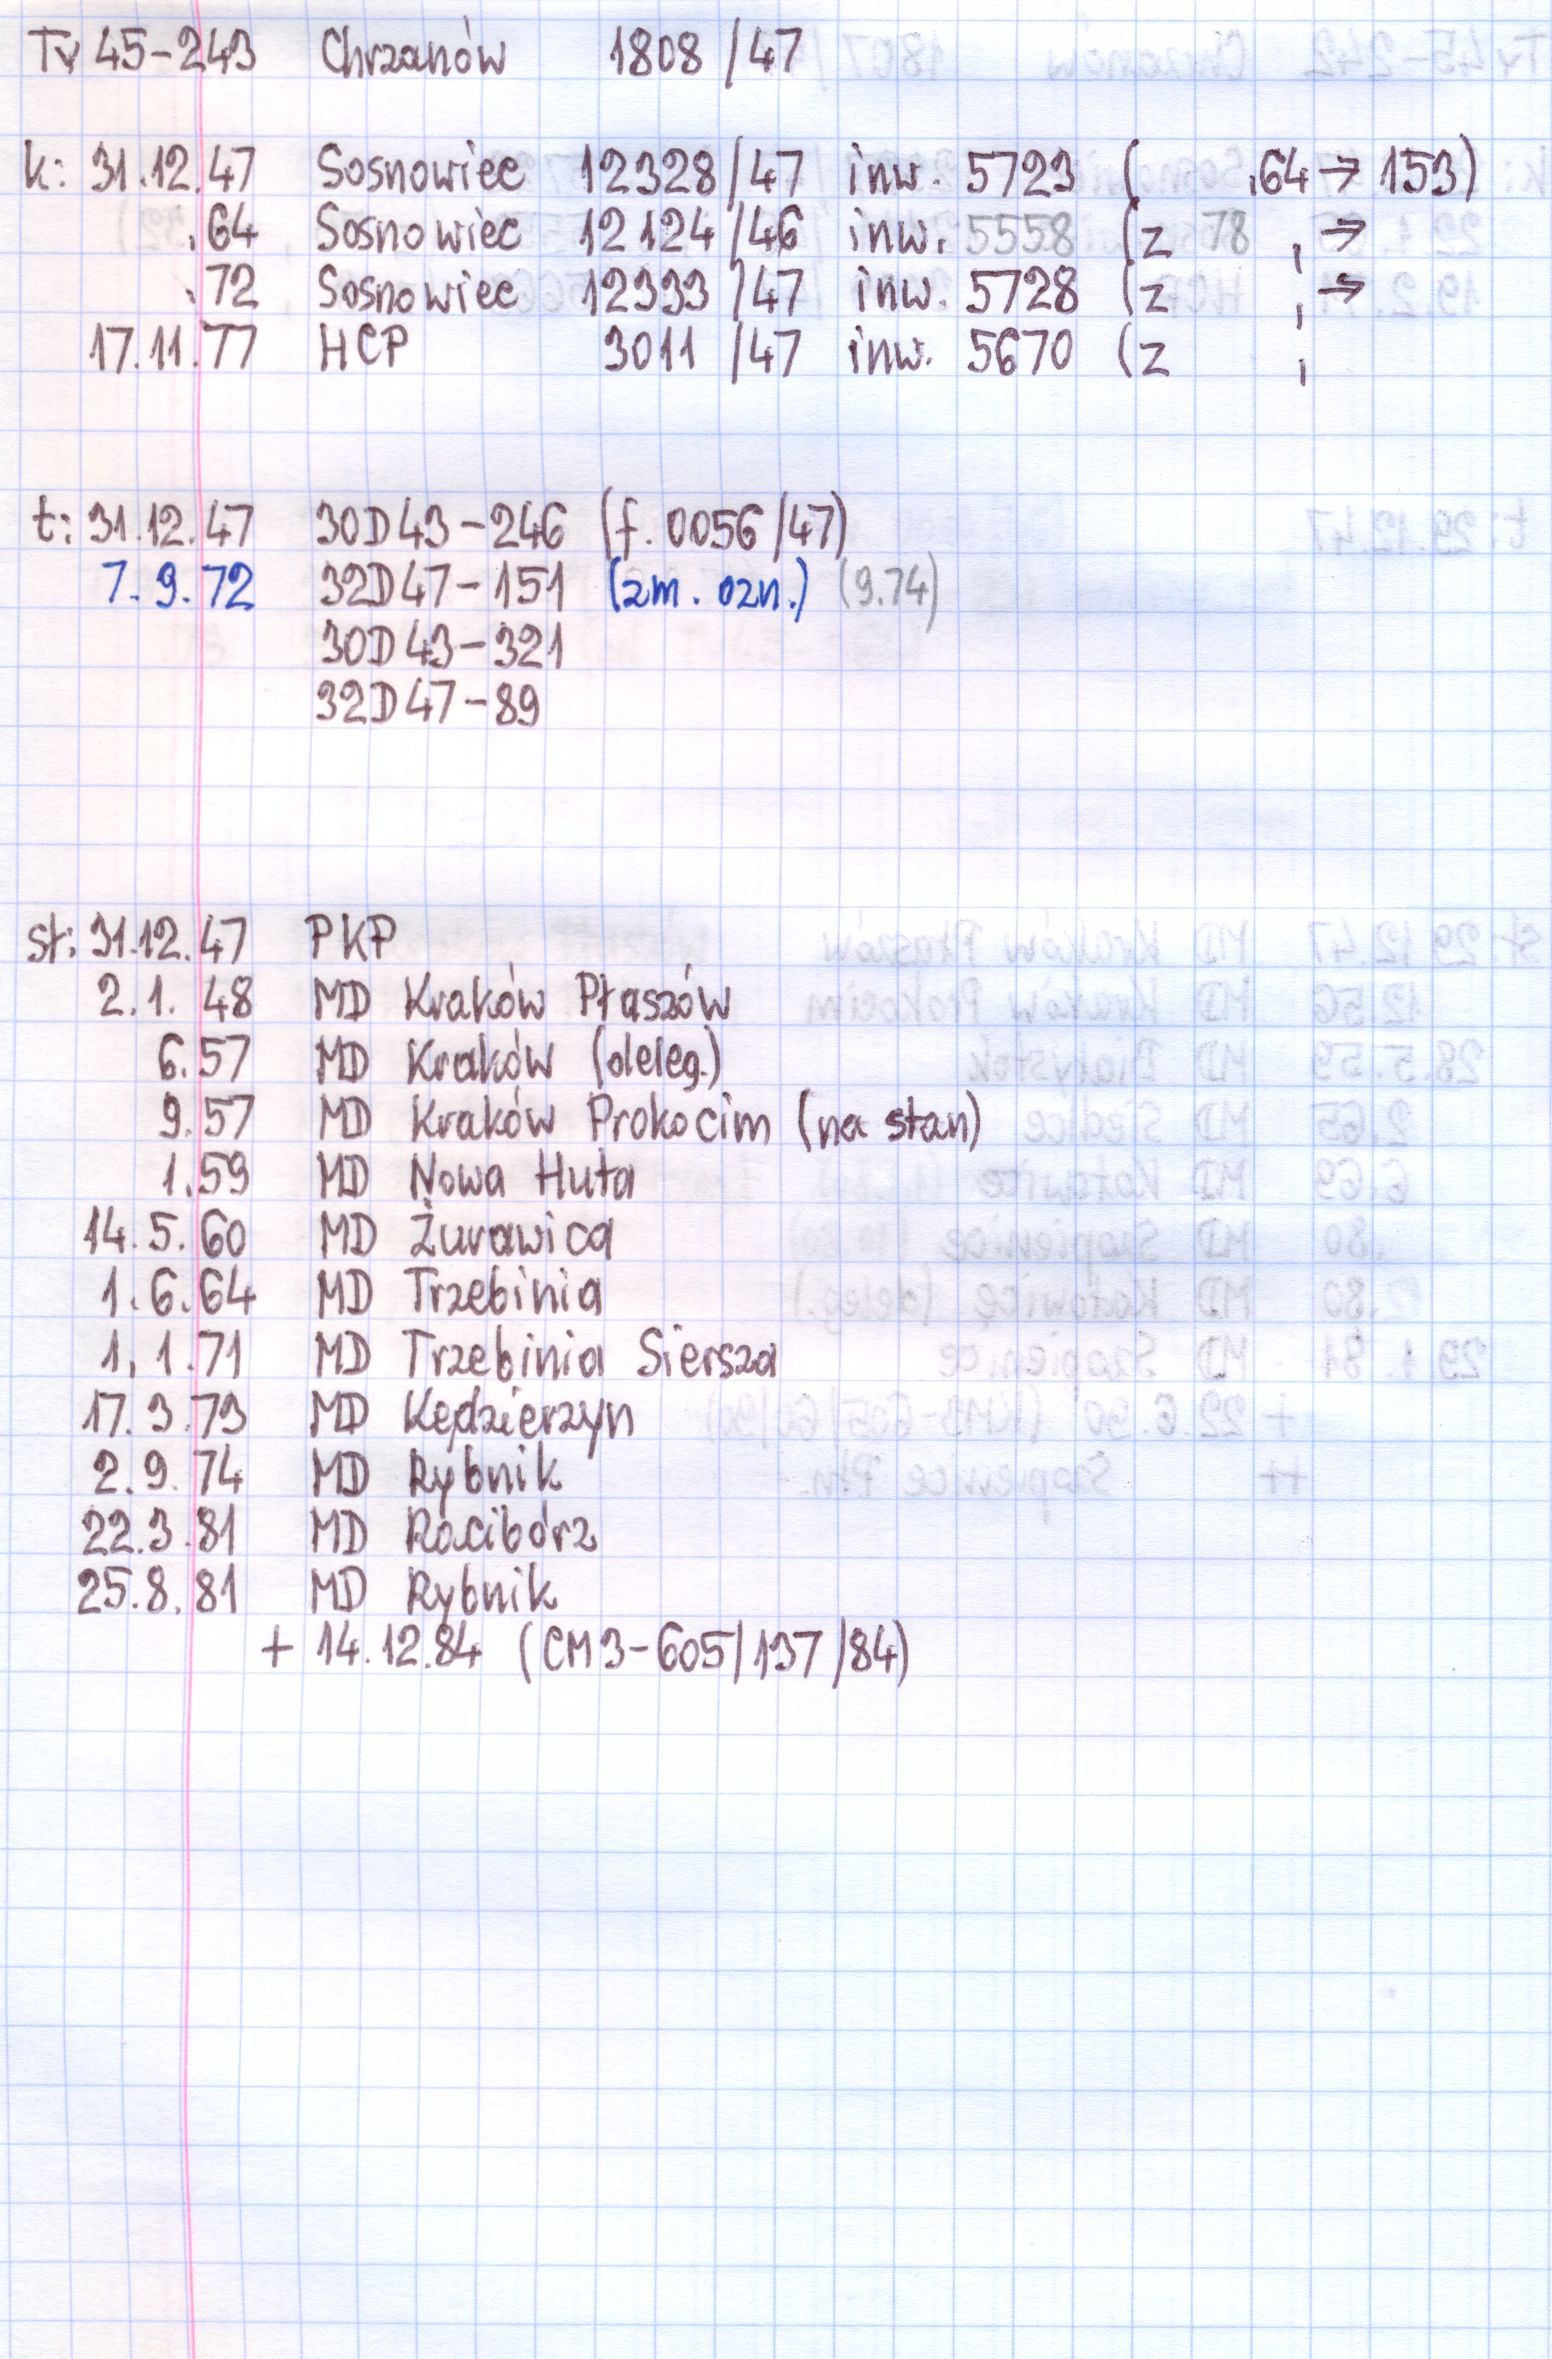 Ty 45-243 Chrzanów 1808/47
k: 31.12.47 Sosnowiec 12328/47 inw. 5723 ( .64→153)
.64 Sosnowiec 12124/46 inw. 5558 (z 78 , →
.72 Sosnowiec 12333/47 inw. 5728 (z , →
17.11.77 HCP 3011/47 inw. 5670 (z ,
t: 31.12.47 30D43-246 (f. 0056/47)
7.9.72 32D47-151 (zm. ozn.) (9.74)
30D43-321
32D47-89
st: 31.12.47 PKP
2.1.48 MD Kraków Płaszów
6.57 MD Kraków (deleg.)
9.57 MD Kraków Prokocim (na stan)
1.59 MD Nowa Huta
14.5.60 MD Żurawica
1.6.64 MD Trzebinia
1.1.71 MD Trzebinia Siersza
17.3.73 MD Kędzierzyn
2.9.74 MD Rybnik
22.3.81 MD Racibórz
25.8.81 MD Rybnik
+ 14.12.84 (CM3-605/137/84)